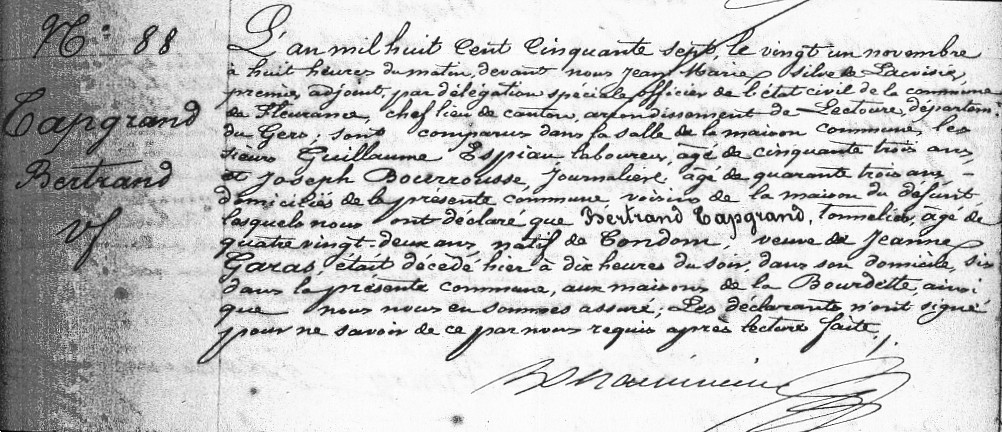 N.º 88
Capgrand
Bertrand
vf
L'an mil huit Cent Cinquante sept, le vingt un novembre
à huit heures du matin, devant nous Jean Marie Silve de
premier adjoint, par délégation spéciale officier de l'état civil de la commune
de Fleurance, chef lieu de canton, arrondissement de Lectoure, départem.
du Gers; sont comparus dans la salle de la maison commune, les
sieurs Guillaume Espiau laboureur, agé de cinquante trois ans,
et Joseph Bourrousse, Journalier, agé de quarante trois ans –
domiciliés de la présente commune, voisins de la maison du défunt
lesquels nous ont déclaré que Bertrand Capgrand, tonnelier, agé de
quatre vingt-deux ans, natif de Condom, veuve de Jeanne
Garas, était décédé hier à dix heures du soir, dans son domicile, sis
dans la présente commune, aux maisons de la Bourdette, ainsi
que nous nous en sommes assuré; Les déclarants n'ont signé
pour ne savoir de ce par nous requis après lecture faite.